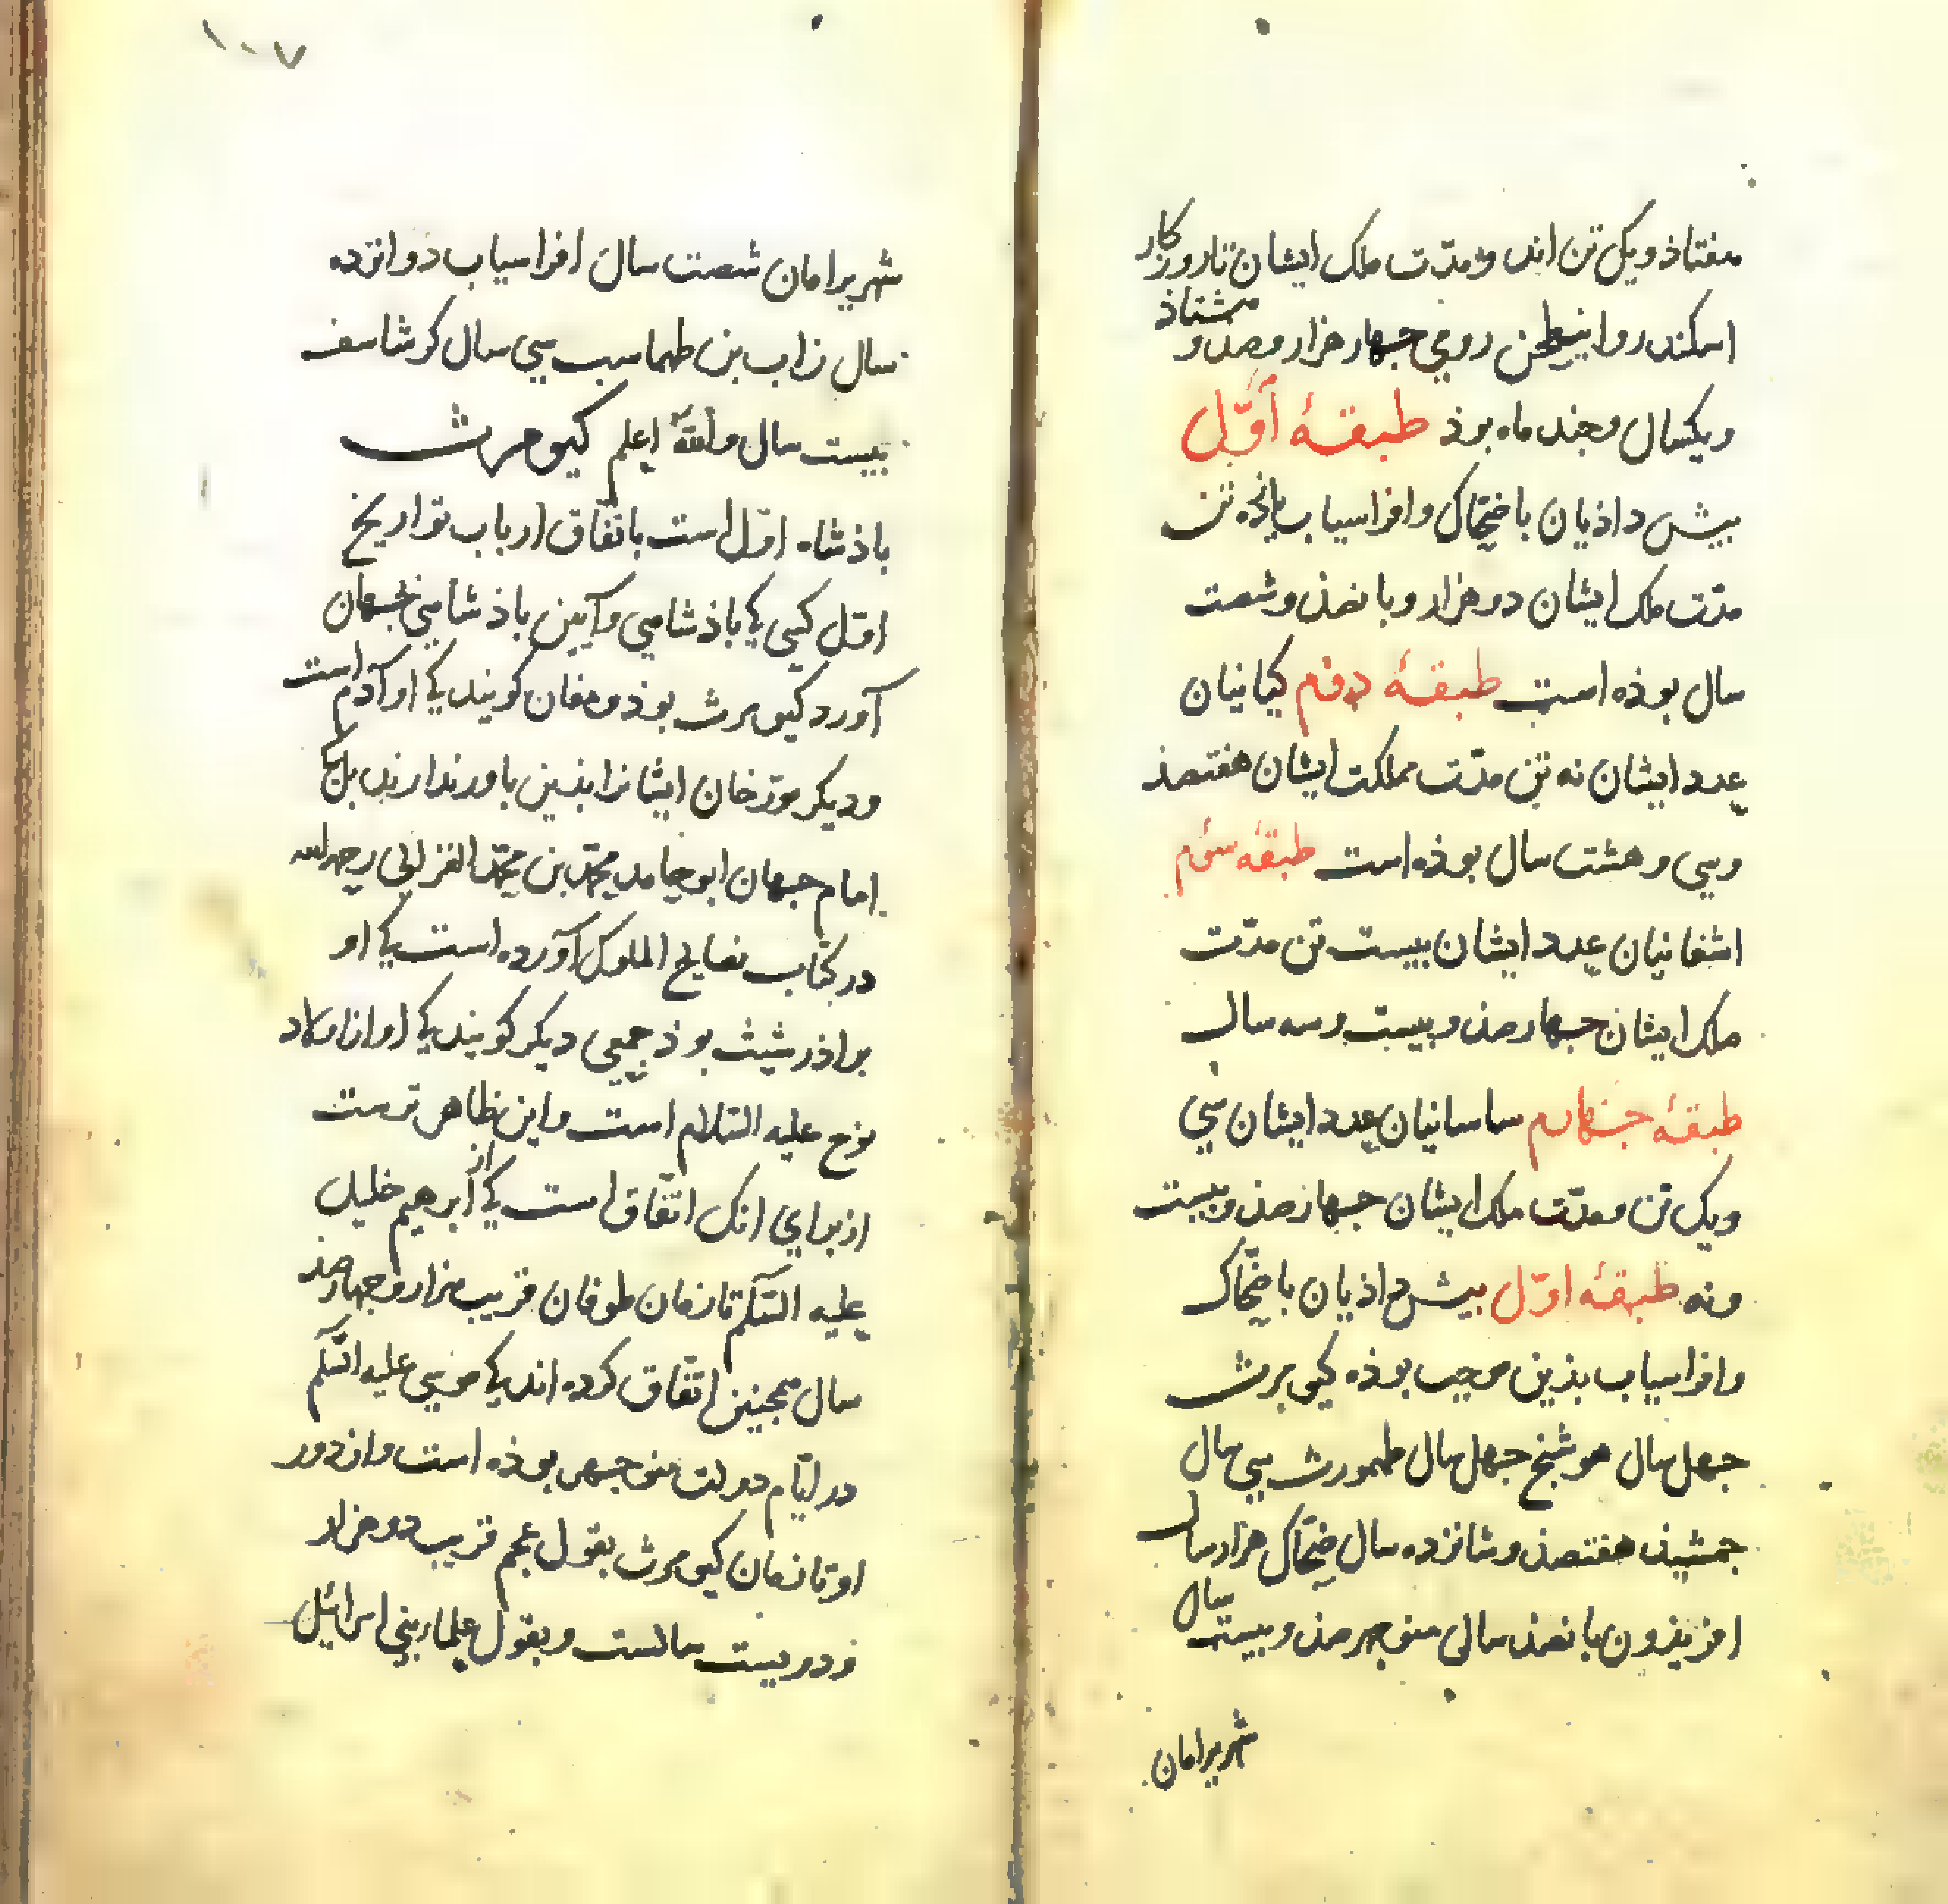 هفتاذ ویک تن اند ومدّت ملک ایشان تا روزکار
اسکندر روا رومی جهار هزار وصذ و هشتاذ
ویکسال وجند ماه بوذ طبقهٔ اوّل
بیش داذیان با ضحّاک وافراسیاب یازده تن
مدّت ملک ایشان دو هزار و بانصذ وشصت
سال بوذه است طبقهٔ دوم کیانیان
عدد ایشان نه تن مدّت مملکت ایشان هفتصذ
وسی و هشت سال بوذه است طبقهٔ سوم
اشغانیان عدد ایشان بیست تن مدّت
ملک ایشان جهار صذ و بیست و سه سال
طبقهٔ جهارم ساسانیان عدد ایشان سی
ویک تن ومدّت ملک ایشان جهار صذ وبیست
ونه طبقهٔ اوّل بیش داذیان با ضحّاک
وافراسیاب بذین موجب بوذه کیومرث
جهل سال هوشنج جهل سال طهمورث سی سال
جمشیذ هفتصذ و شانزده سال ضحّاک هزار سال
افریذون بانصذ سال منوجهر صذ و بیست سال
شهریرامان
١٠٧
شهریرامان شصت سال افراسیاب دوانزده
سال زاب بن طهماسب سی سال کرشاسف
بیست سال والله اعلم کیومرث
باذشاه اوّل است باتّفاق ارباب تواریخ
اوّل کسی کی باذشاهی وآیین باذشاهی بجهان
آورد کیومرث بوذ ومغان کویند کی او آدم است
ودیکر مورّخان ایشانرا بذین باور ندارند بلک
امام جهان ابو حامد محمّد بن محمّد الغزالی رحمه الله
در کتاب نصایح الملوک آورده است کی او
براذر شیث بوذ جمعی دیکر کویند کی او از اولاد
نوح علیه السّلام است واین بظاهر ترست
از برای انک اتّفاق است کی از ابرهیم خلیل
علیه السّلم تا زمان طوفان قریب هزار و جهارصذ
سال همجنین اتّفاق کرده اند کی موسی علیه السّلم
در ایّام دولت منوجهر بوذه است واز دور
او تا زمان کیومرث بقول عجم قریب دو هزار
ودویست سالست و بقول علماء بنی اسرائیل